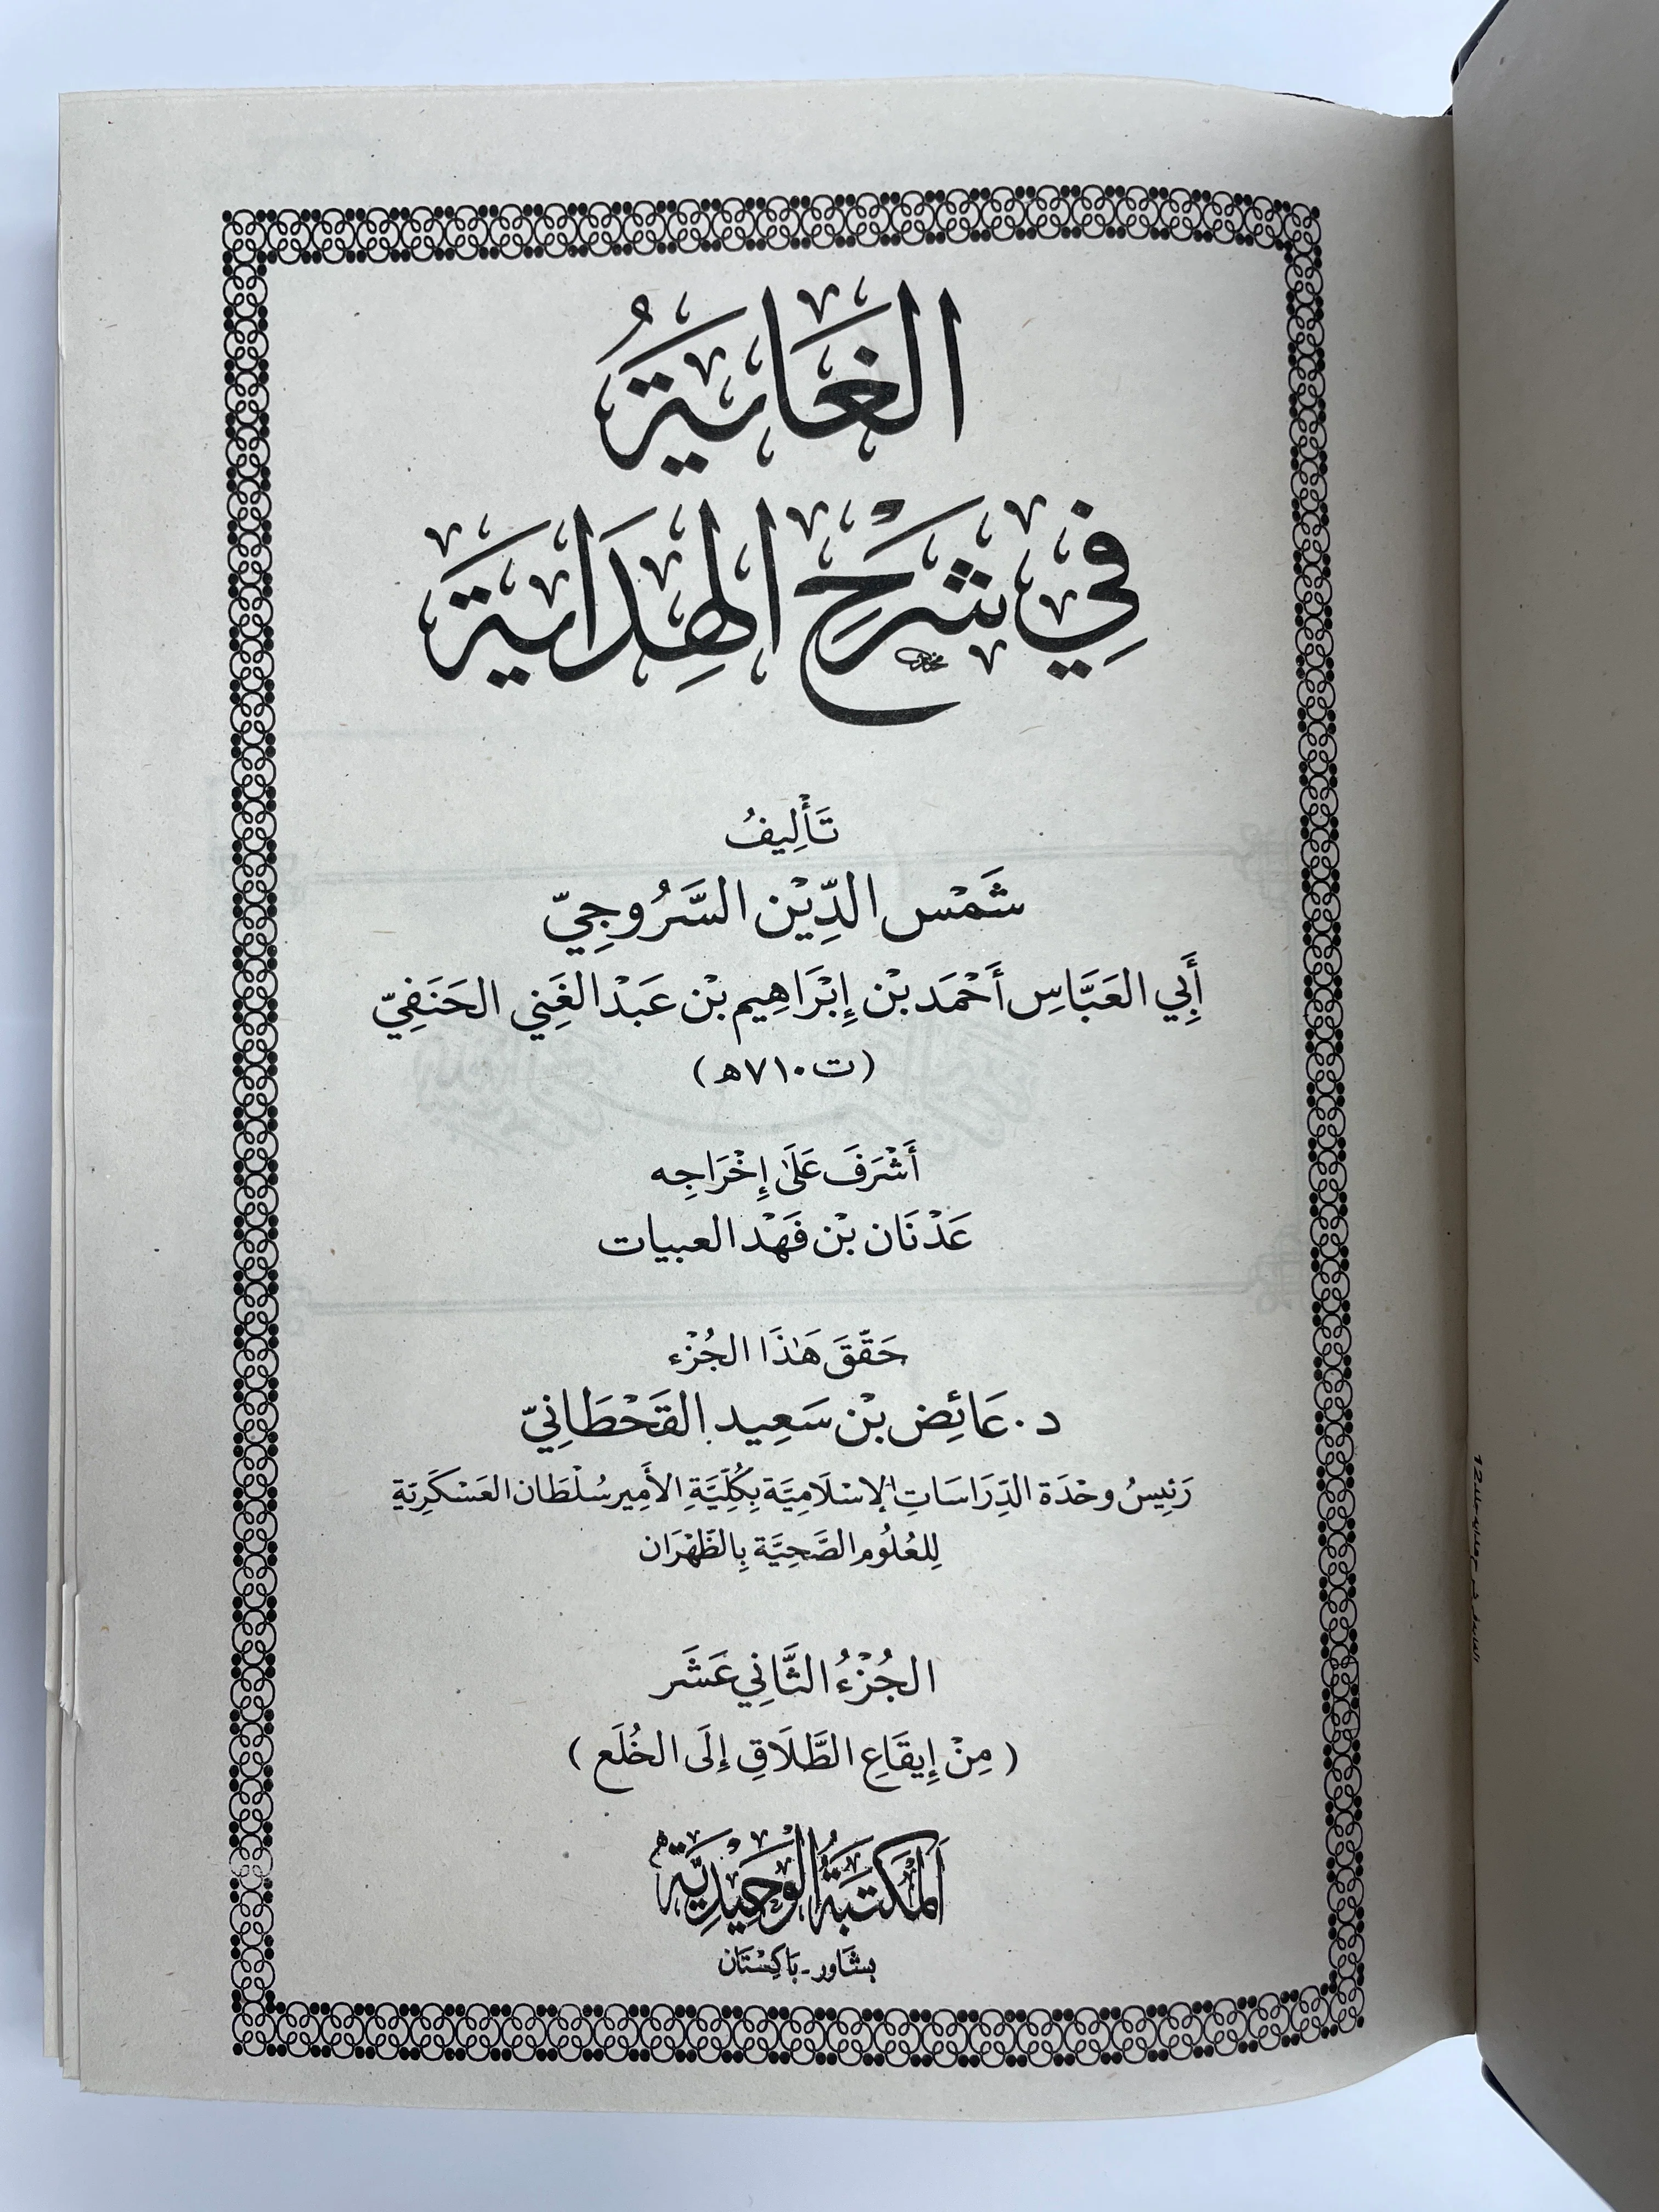 الغَايَةُ
فِي شَرْحِ الهِدَايَة
تَأْلِيفُ
شَمْس الدِّيْن السَّرُوجِيّ
أَبِي العَبَّاسِ أَحْمَد بْن إِبْرَاهِيم بْن عَبْد الغَنِي الحَنَفِيّ
(ت ٧١٠هـ)
أَشْرَفَ عَلَى إِخْرَاجِه
عَدْنَان بْن فَهْد العبيات
حَقَّقَ هَٰذَا الجُزْء
د. عَائِض بْن سَعِيد القَحْطَانِيّ
رَئِيسُ وحْدَة الدِّرَاسَاتِ الإسْلَامِيَّة بِكُلِّيَّةِ الأَمِير سُلْطَان العَسْكَرِيَّة
لِلعُلُوم الصَّحِيَّة بِالظَّهْرَان
الجُزْءُ الثَّانِي عَشَر
(مِنْ إِيقَاعِ الطَّلَاقِ إِلَى الخُلَع)
اَلْمَكْتَبَةُ الْوَحِيْدِيَّة
بشَاور - بَاكِسْتَان